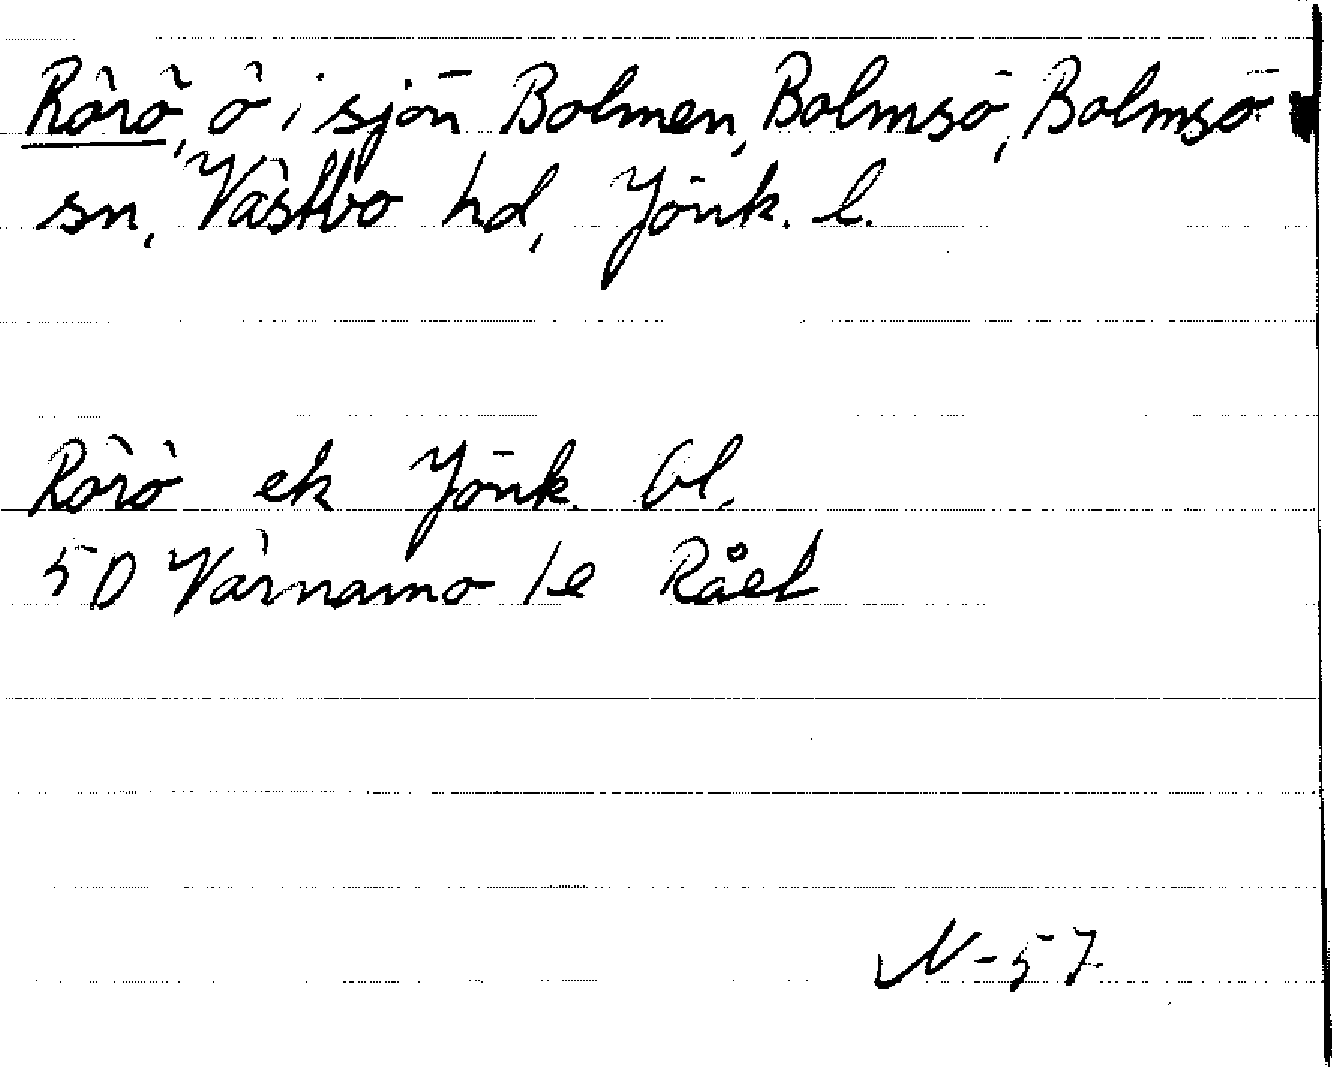 Rörö, ö i sjön Bolmen, Bolmsö, Bolmsö
sn, Västbo hd, Jönk. l.
Rörö ek Jönk. Gl.
5D Värnamo 1e RåEL
N-57